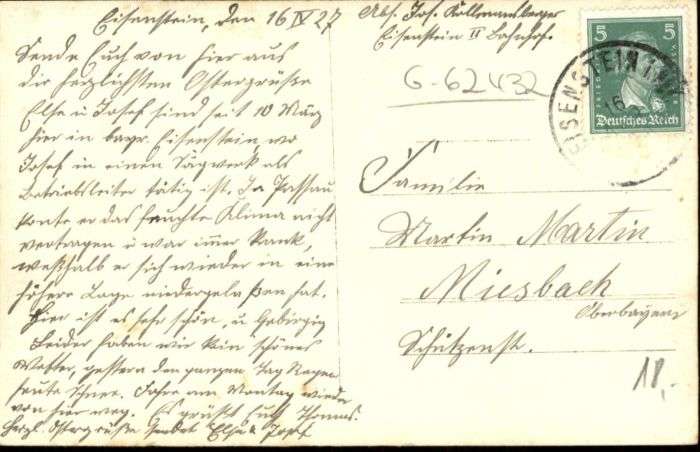 Eisenstein, den 16 IV 27
Sende Euch von hier aus
die herzlichsten Ostergrüße
Else u Josef sind seit 10 März
hier in bayr. Eisenstein, wo
Josef in einen Sägwerk als
Betriebsleiter tätig ist. In Passau
konte er das feuchte Klima nicht
vertragen u war immer krank,
weßhalb er sich wieder in eine
höhere Lage niedergelaßen hat.
Hier ist es sehr schön, u Gebirgig
Leider haben wir kein schönes
Wetter, gestern den ganzen Tag Regen
heute Schnee. Fahre am Montag wieder
von hier weg. Es grüßt Euch Thomas.
Herzl. Ostergrüße sendet Else u Josef
Abs. Jos.
Eisenstein II Bahnhof.
G-62432
Familie
Martin Martin
Miesbach
Oberbayern
Schützenst.
18,-
5 5
Deutsches Reich
EISENSTEIN